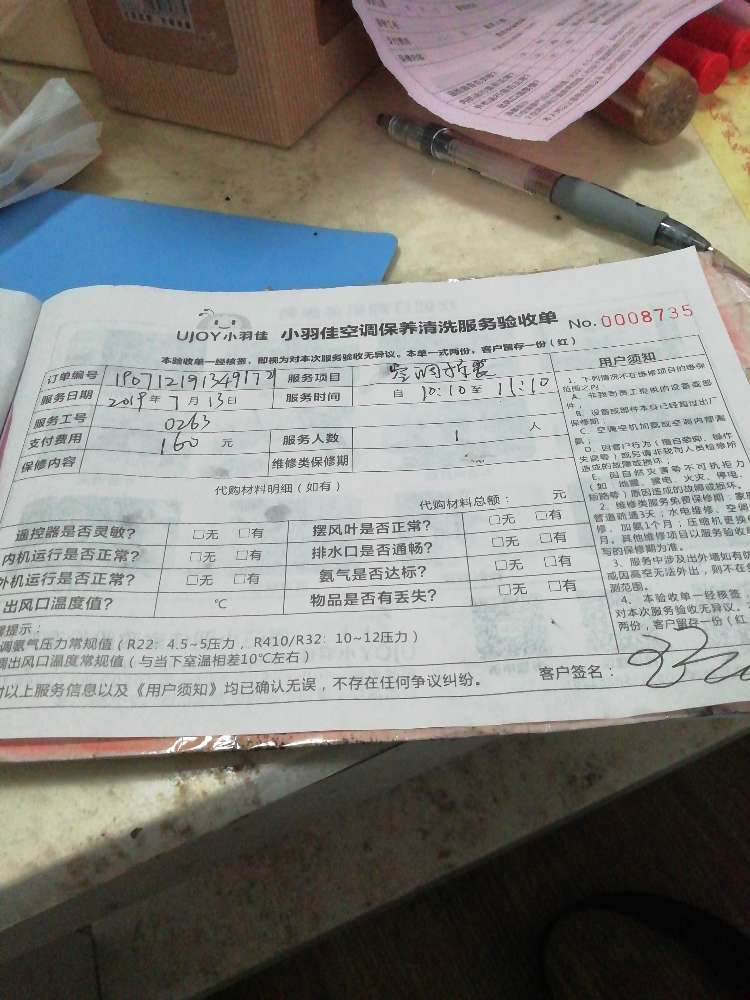 UJOY小羽佳 小羽佳空调保养清洗服务验收单 No.0008735
本验收单一经核签，即视为对本次服务验收无异议。本单一式两份，客户留存一份（红）
订单编号 190712191349172 服务项目
服务日期 2019年7月13日 服务时间 自 10:10至 11:10
服务工号 0263
支付费用 160 元 服务人数 1 人
保修内容 维修类保修期
代购材料明细（如有）
代购材料总额： 元
遥控器是否灵敏？ □无 □有 摆风叶是否正常？ □无 □有
内机运行是否正常？ □无 □有 排水口是否通畅？ □无 □有
外机运行是否正常？ □无 □有 氨气是否达标？ □无 □有
出风口温度值？ ℃ 物品是否有丢失？ □无 □有
提示：
调氨气压力常规值（R22：4.5~5压力，R410/R32：10~12压力）
出风口温度常规值（与当下室温相差10℃左右）
以上服务信息以及《用户须知》均已确认无误，不存在任何争议纠纷。 客户签名：
用户须知
1、下列情况不在维修项目的维保
范围之内
A、非我司员工提供的设备或部
件，
B、设备或部件本身已经超过出厂
保修期
C、空调空机加氨或空调内部漏
氨；
E、因自然灾害等不可抗拒力
（如：地震、雷电、火灾、停电、
短路等）原因造成的故障或损坏。
2、维修类服务免费保修期：家
管道疏通3天；水电维修、空调
修，加氨1个月；压缩机更换
月。其他维修项目以服务验收单
写的保修期为准。
3、服务中涉及出外墙如有防
或因高空无法外出，则不在
测范围。
4、本验收单一经核签
对本次服务验收无异议。
两份，客户留存一份（红